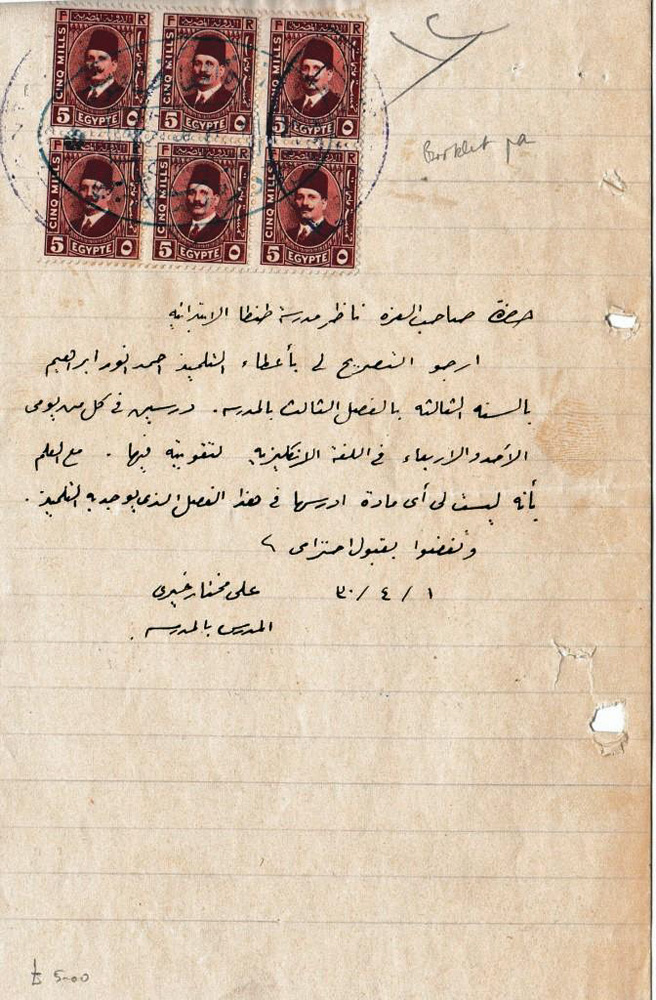 F R F R F R
CINQ MILLS CINQ MILLS CINQ MILLS
5 EGYPTE ٥ 5 EGYPTE ٥ 5 EGYPTE ٥
F R F R F R
CINQ MILLS CINQ MILLS CINQ MILLS
5 EGYPTE ٥ 5 EGYPTE ٥ 5 EGYPTE ٥
Booklet pa
حضرة صاحب العزه ناظر مدرسة طنطا الابتدائيه
ارجو التصريح لى بأعطاء التلميذ احمد انور ابراهيم
بالسنه الثالثه بالفصل الثالث بالمدرسه . درسين فى كل من يومى
الأحد والاربعاء فى اللغة الانكليزيه لتقويته فيها . مع العلم
بأنه ليست لى أى مادة ادرسها فى هذا الفصل الذى يوجد به التلميذ .
وتفضلوا بقبول احترامى
١ / ٤ / ٣٠ على مختار خيرى
المدرس بالمدرسه
£ 5-00